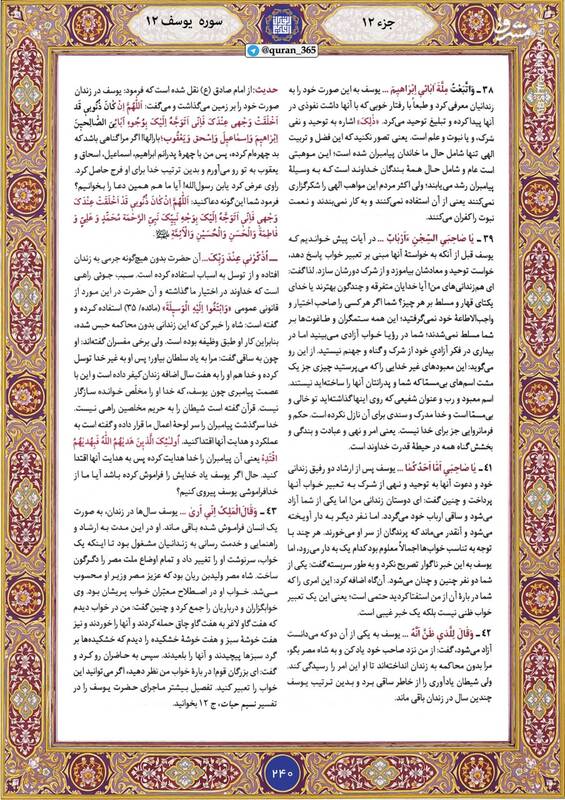 جزء ۱۲
سوره یوسف ۱۲
@quran_365
مشرق
۳۸ ـ وَاتَّبَعْتُ مِلَّةَ آبَائِي إِبْرَاهِيمَ... یوسف به این صورت خود را به
زندانیان معرفی کرد و طبعاً با رفتار خوبی که با آنها داشت نفوذی در
آنها پیدا کرده و تبلیغ توحید می‌کرد. «ذٰلِکَ» اشاره به توحید و نفی
شرک، و یا نبوت و علم است. یعنی تصور نکنید که این فضل و تربیت
الهی تنها شامل حال ما خاندان پیامبران شده است؛ این موهبتی
است عام و شامل حال همهٔ بندگان خداوند است که به وسیلهٔ
پیامبران رشد می‌یابند؛ ولی اکثر مردم این مواهب الهی را شکرگزاری
نمی‌کنند یعنی از آن استفاده نمی‌کنند و به کار نمی‌بندند و نعمت
نبوت را کفران می‌کنند.
۳۹ ـ يَا صَاحِبَيِ السِّجْنِ ءَأَرْبَابٌ... در آیات پیش خواندیم که
یوسف قبل از آنکه به خواستهٔ آنها مبنی بر تعبیر خواب پاسخ دهد،
خواست توحید و معادشان بیاموزد و از شرک دورشان سازد. لذا گفت:
ای هم‌زندانی‌های من! آیا خدایان متفرقه و چندگون بهترند یا خدای
یکتای قهار و مسلط بر هر چیز؟ شما اگر هر کسی را صاحب اختیار و
واجب‌الاطاعهٔ خود نمی‌گرفتید؛ این همه ستمگران و طاغوت‌ها بر
شما مسلط نمی‌شدند؛ شما در رؤیا خواب آزادی می‌بینید اما در
بیداری در فکر آزادی خود از شرک و گناه و جهنم نیستید. از این رو
می‌گوید: این معبودهای غیر خدایی را که می‌پرستید چیزی جز یک
مشت اسم‌های بی‌مسمّا که شما و پدرانتان آنها را ساخته‌اید نیستند.
اسم معبود و رب و عنوان شفیعی که روی اینها گذاشته‌اید تو خالی و
بی‌مسمّا است و خدا مدرک و سندی برای آن نازل نکرده است. حکم و
فرمانروایی جز برای خدا نیست. یعنی امر و نهی و عبادت و بندگی و
بخشش گناه همه در حیطهٔ قدرت خداوند است.
۴۱ ـ يَا صَاحِبَيِ أَمَّا أَحَدُكُمَا... یوسف پس از ارشاد دو رفیق زندانی
خود و دعوت آنها به توحید و نهی از شرک به تعبیر خواب آنها
پرداخت و چنین گفت: ای دوستان زندانی من! اما یکی از شما آزاد
می‌شود و ساقی ارباب خود می‌گردد. اما نفر دیگر به دار آویخته
می‌شود و آنقدر می‌ماند که پرندگان از سر او می‌خورند. هر چند با
توجه به تناسب خواب‌ها اجمالاً معلوم بود کدام یک به دار می‌رود، اما
یوسف به این خبر ناگوار تصریح نکرد و به طور سربسته گفت: یکی از
شما دو نفر چنین و چنان می‌شود. آن‌گاه اضافه کرد: این امری را که
شما در بارهٔ آن از من استفتا کردید حتمی است؛ یعنی این یک تعبیر
خواب ظنی نیست بلکه یک خبر غیبی است.
۴۲ ـ وَقَالَ لِلَّذِي ظَنَّ أَنَّهُ... یوسف به یکی از آن دو که می‌دانست
آزاد می‌شود، گفت: از من نزد صاحب خود یاد کن و به شاه مصر بگو،
مرا بدون محاکمه به زندان انداخته‌اند تا او این امر را رسیدگی کند.
ولی شیطان یادآوری را از خاطر ساقی برد و بدین ترتیب یوسف
چندین سال در زندان باقی ماند.
حدیث: از امام صادق (ع) نقل شده است که فرمود: یوسف در زندان
صورت خود را بر زمین می‌گذاشت و می‌گفت: اَللّٰهُمَّ إِنْ كَانَ ذُنُوبِي قَدْ
أَخْلَقَتْ وَجْهِي عِنْدَكَ فَإِنِّي أَتَوَجَّهُ إِلَيْكَ بِوُجُوهِ آبَائِيَ الصَّالِحِينَ
إِبْرَاهِيمَ وَإِسْمَاعِيلَ وَإِسْحٰقَ وَيَعْقُوبَ؛ بارالها! اگر مرا گناهی باشد که
بد چهره‌ام کرده، پس من با چهرهٔ پدرانم ابراهیم، اسماعیل، اسحاق و
یعقوب به تو رو می‌آورم و بدین ترتیب خدا برای او فرج حاصل کرد.
راوی عرض کرد یابن رسول‌الله! آیا ما هم همین دعا را بخوانیم؟
فرمود شما این گونه دعا کنید: اَللّٰهُمَّ إِنْ كَانَ ذُنُوبِي قَدْ أَخْلَقَتْ عِنْدَكَ
وَجْهِي فَإِنِّي أَتَوَجَّهُ إِلَيْكَ بِوَجْهِ نَبِيِّكَ نَبِيِّ الرَّحْمَةِ مُحَمَّدٍ وَ عَلِيٍّ وَ
فَاطِمَةَ وَالْحَسَنِ وَالْحُسَيْنِ وَالْأَئِمَّةِ
ــ اُذْكُرْنِي عِنْدَ رَبِّكَ... آن حضرت بدون هیچ‌گونه جرمی به زندان
افتاده و از توسل به اسباب استفاده کرده است. سبب جوئی راهی
است که خداوند در اختیار ما گذاشته و آن حضرت در این مورد از
قانونی عمومی «وَابْتَغُوا إِلَيْهِ الْوَسِيلَةَ» (مائده/ ۳۵) استفاده کرده و
گفته است: شاه را خبر کن که این زندانی بدون محاکمه حبس شده،
بنابراین کار او طبق وظیفه بوده است. ولی برخی مفسران گفته‌اند: او
چون به ساقی گفت: مرا به یاد سلطان بیاور؛ پس او به غیر خدا توسل
کرده و خدا هم او را به هفت سال اضافه زندان کیفر داده است و این با
عصمت پیامبری چون یوسف، که خدا او را مخلَص خوانده سازگار
نیست. قرآن گفته است شیطان را به حریم مخلصین راهی نیست.
خدا سرگذشت پیامبران را سر لوحهٔ اعمال ما قرار داده و گفته است به
عملکرد و هدایت آنها اقتدا کنید. أُولٰئِكَ الَّذِينَ هَدَيهُمُ اللّٰهُ فَبِهُدَيهُمُ
اقْتَدِهْ یعنی آن پیامبران را خدا هدایت کرده پس به هدایت آنها اقتدا
کنید. حال اگر یوسف یاد خدایش را فراموش کرده باشد آیا ما از
خدافراموشی یوسف پیروی کنیم؟
۴۳ ـ وَقَالَ الْمَلِكُ إِنِّي أَرَىٰ... یوسف سال‌ها در زندان، به صورت
یک انسان فراموش شده باقی ماند. او در این مدت به ارشاد و
راهنمایی و خدمت رسانی به زندانیان مشغول بود تا اینکه یک
خواب، سرنوشت او را تغییر داد و تمام اوضاع ملت مصر را دگرگون
ساخت. شاه مصر ولیدبن ریان بود که عزیز مصر وزیر او محسوب
می‌شد. خواب او در اصطلاح معبّران خواب پریشان بود. وی
خوابگزاران و درباریان را جمع کرد و چنین گفت: من در خواب دیدم
که هفت گاو لاغر به هفت گاو چاق حمله کردند و آنها را خوردند و نیز
هفت خوشهٔ سبز و هفت خوشهٔ خشکیده را دیدم که خشکیده‌ها بر
گرد سبزها پیچیدند و آنها را بلعیدند. سپس به حاضران رو کرد و
گفت: ای بزرگان قوم! در بارهٔ خواب من نظر دهید، اگر می‌توانید این
خواب را تعبیر کنید. تفصیل بیشتر ماجرای حضرت یوسف را در
تفسیر نسیم حیات، ج ۱۲ بخوانید.
۲۴۰